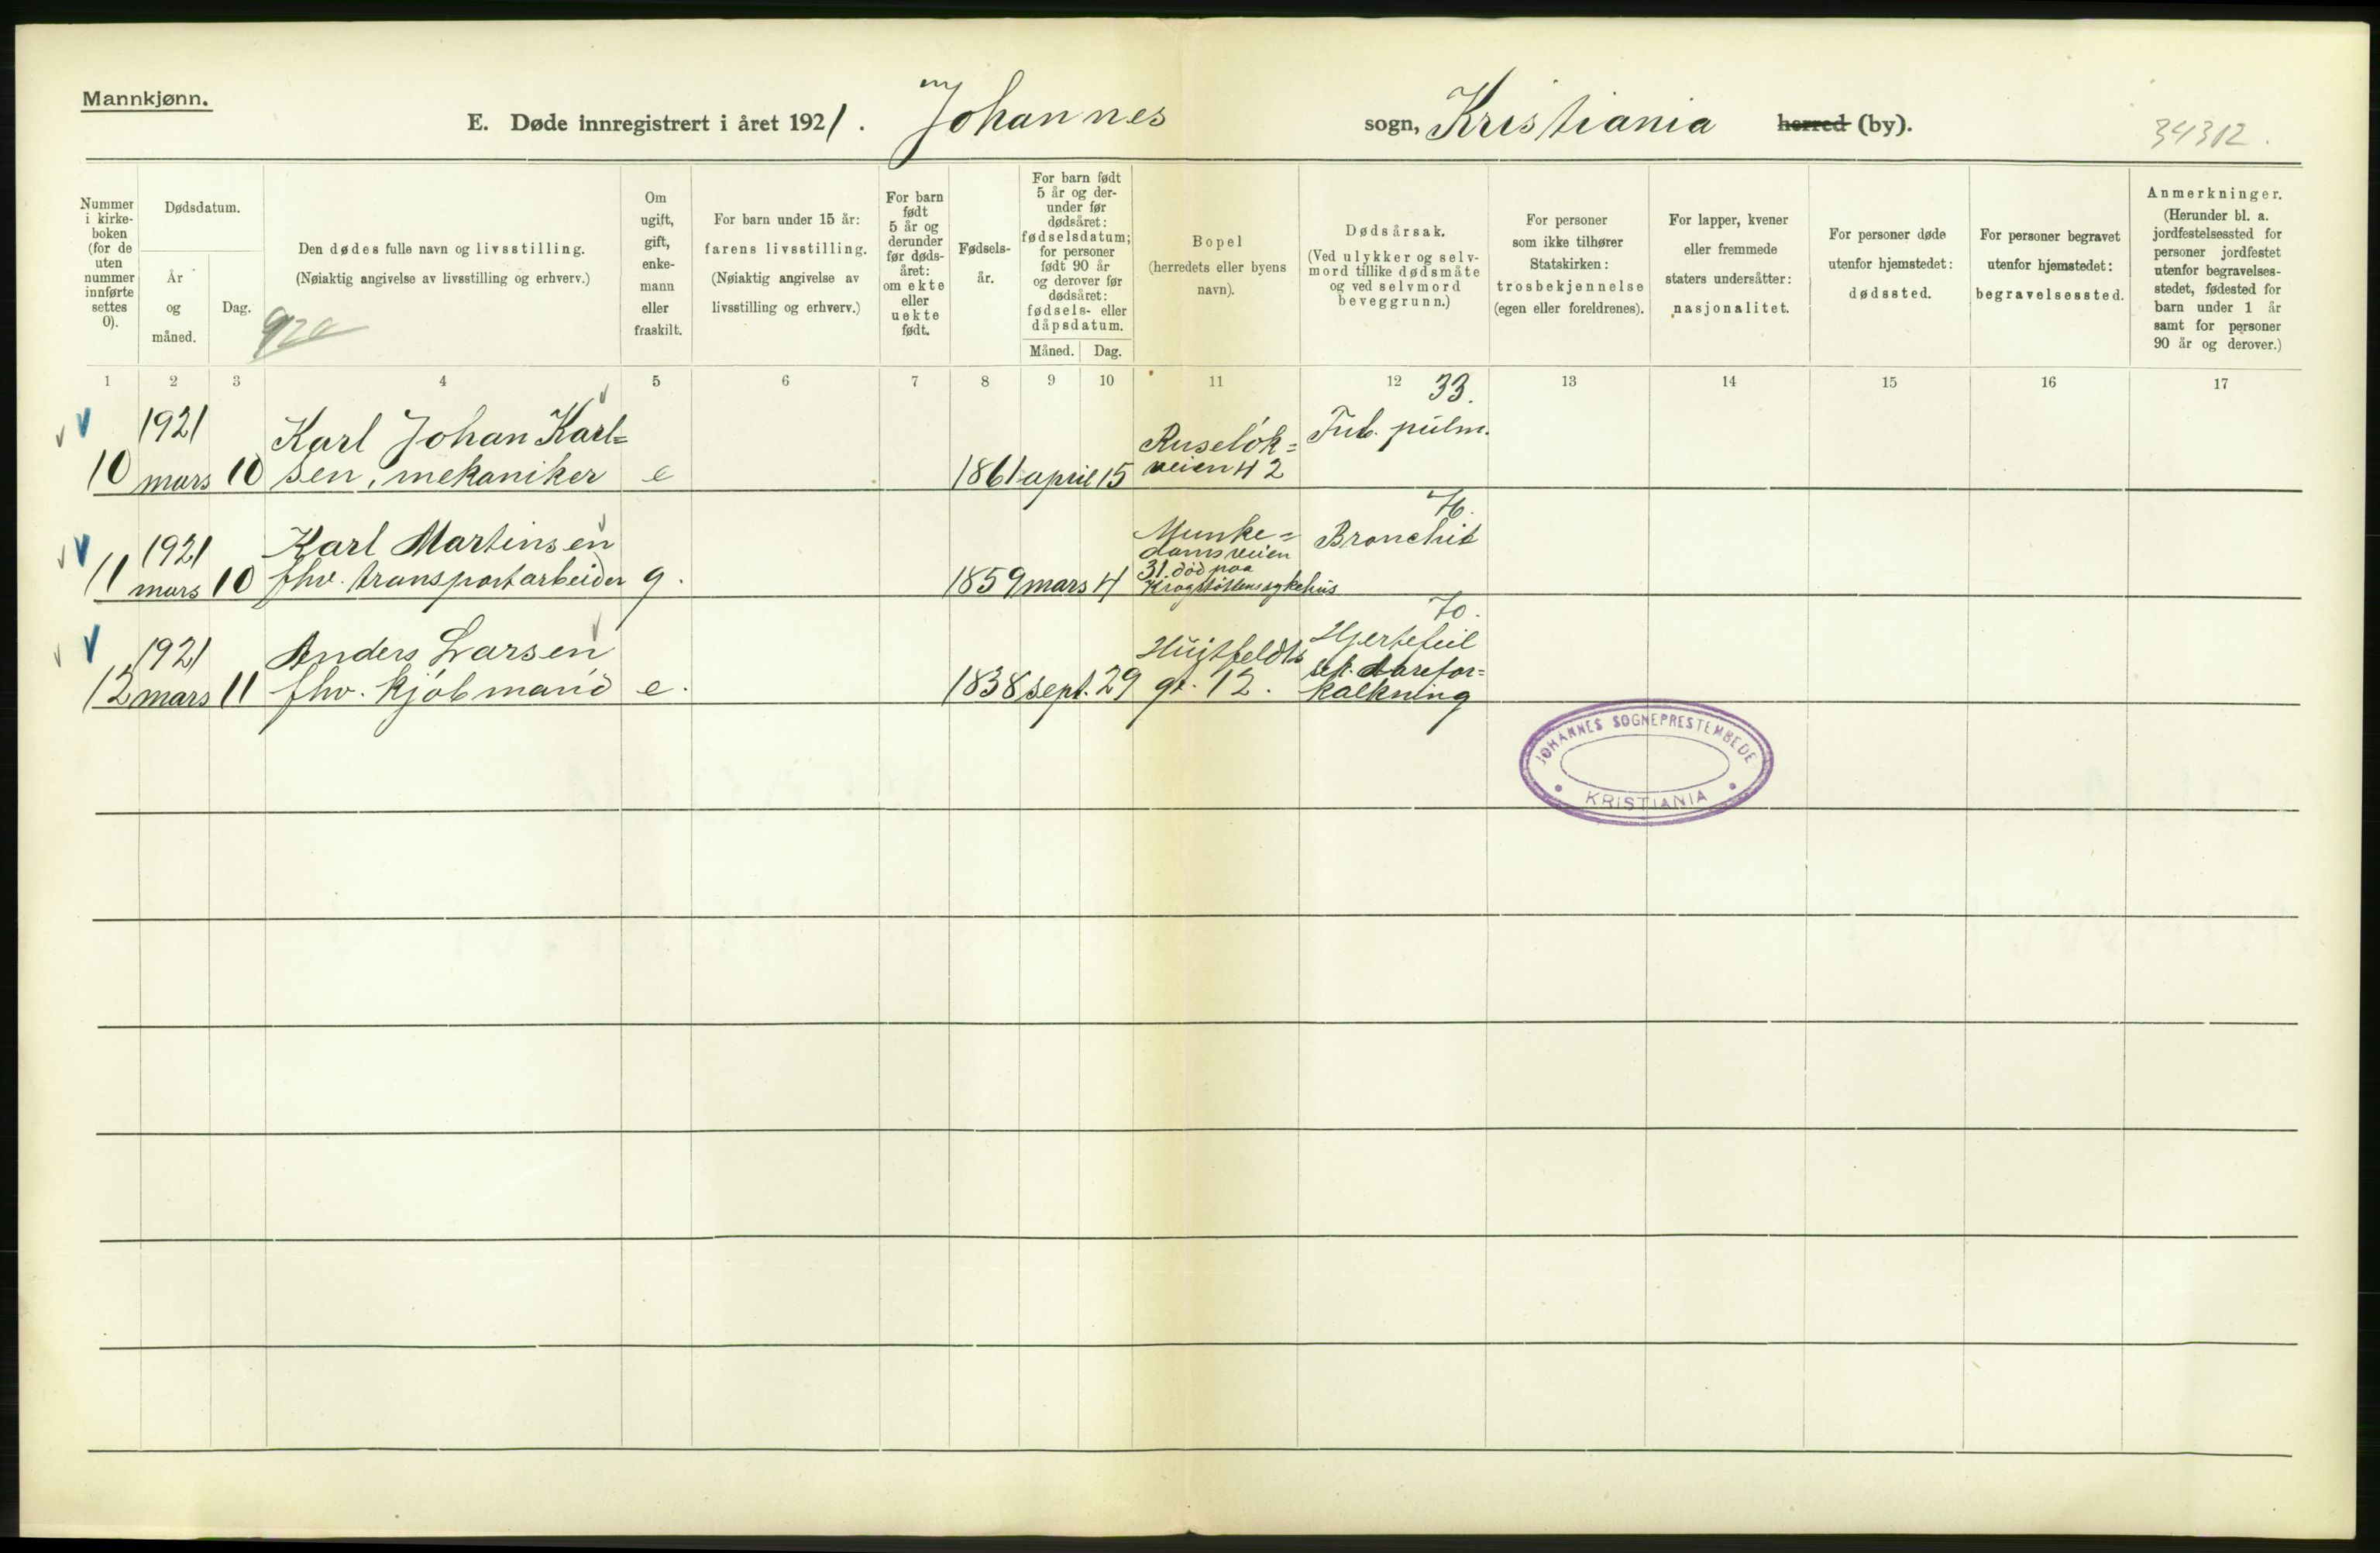 Mannkjønn.
E. Døde innregistrert i året 1921. Johannes sogn, Kristiania herred (by).
34312.
Nummer
i kirke-
boken
(for de
uten
nummer
innførte
settes
0).
Dødsdatum.
År
og
måned.
Dag.
Den dødes fulle navn og livsstilling.
(Nøiaktig angivelse av livsstilling og erhverv.)
Om
ugift,
gift,
enke-
mann
eller
fraskilt.
For barn under 15 år:
farens livsstilling.
(Nøiaktig angivelse av
livsstilling og erhverv.)
For barn
født
5 år og
derunder
før døds-
året:
om ekte
eller
uekte
født.
Fødsels-
år.
For barn født
5 år og der-
under før
dødsåret:
fødselsdatum;
for personer
født 90 år
og derover før
dødsåret:
fødsels- eller
dåpsdatum.
Måned. Dag.
Bopel
(herredets eller byens
navn).
Dødsårsak.
(Ved ulykker og selv-
mord tillike dødsmåte
og ved selvmord
beveggrunn.)
For personer
som ikke tilhører
Statskirken:
trosbekjennelse
(egen eller foreldrenes).
For lapper, kvener
eller fremmede
staters undersåtter:
nasjonalitet.
For personer døde
utenfor hjemstedet:
dødssted.
For personer begravet
utenfor hjemstedet:
begravelsessted.
Anmerkninger.
(Herunder bl. a.
jordfestelsessted for
personer jordfestet
utenfor begravelses-
stedet, fødested for
barn under 1 år
samt for personer
90 år og derover.)
1 2 3 4 5 6 7 8 9 10 11 12 13 14 15 16 17
33.
1921 Karl Johan Karl= Ruseløk= Tub. pulm.
10 mars 10 sen, mekaniker e 1861 april 15 veien 42
76.
1921 Karl Martinsen Munke= Bronchit
damsveien
11 mars 10 fhv. transportarbeider g. 1859 mars 4 31. død paa
Krogstøttens sykehus
70.
1921 Anders Larsen Huitfeldts Hjertefeil
sek. Aarefor=
12 mars 11 fhv. kjøbmand e. 1838 sept. 29 gt. 12. kalkning
JOHANNES SOGNEPRESTEMBEDE
KRISTIANIA